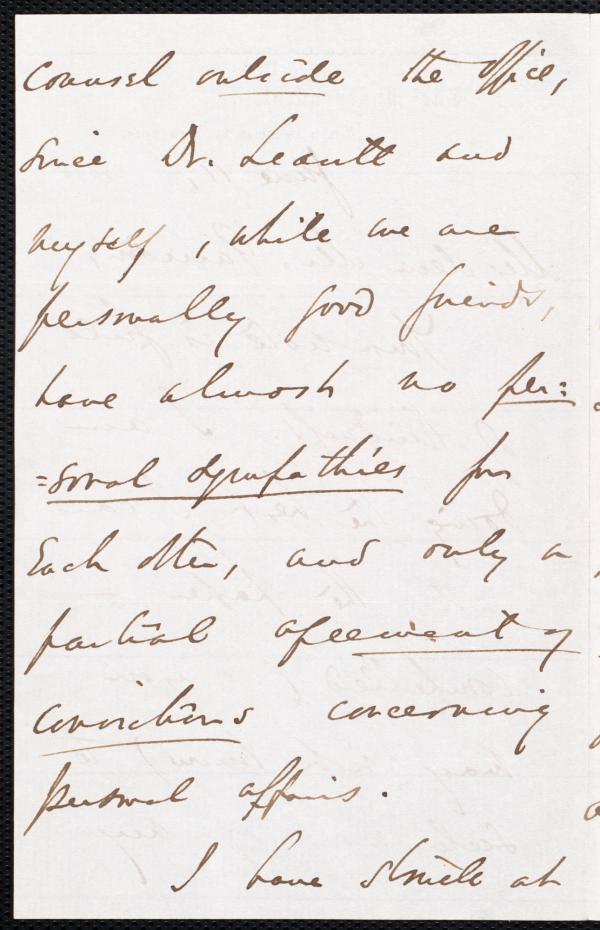 counsel outside the office,
since Dr. Leavitt and
myself, while we are
personally good friends,
have almost no per=
=sonal sympathies for
Each other, and only a
partial agreement of
convictions concerning
personal affairs.
I have struck at